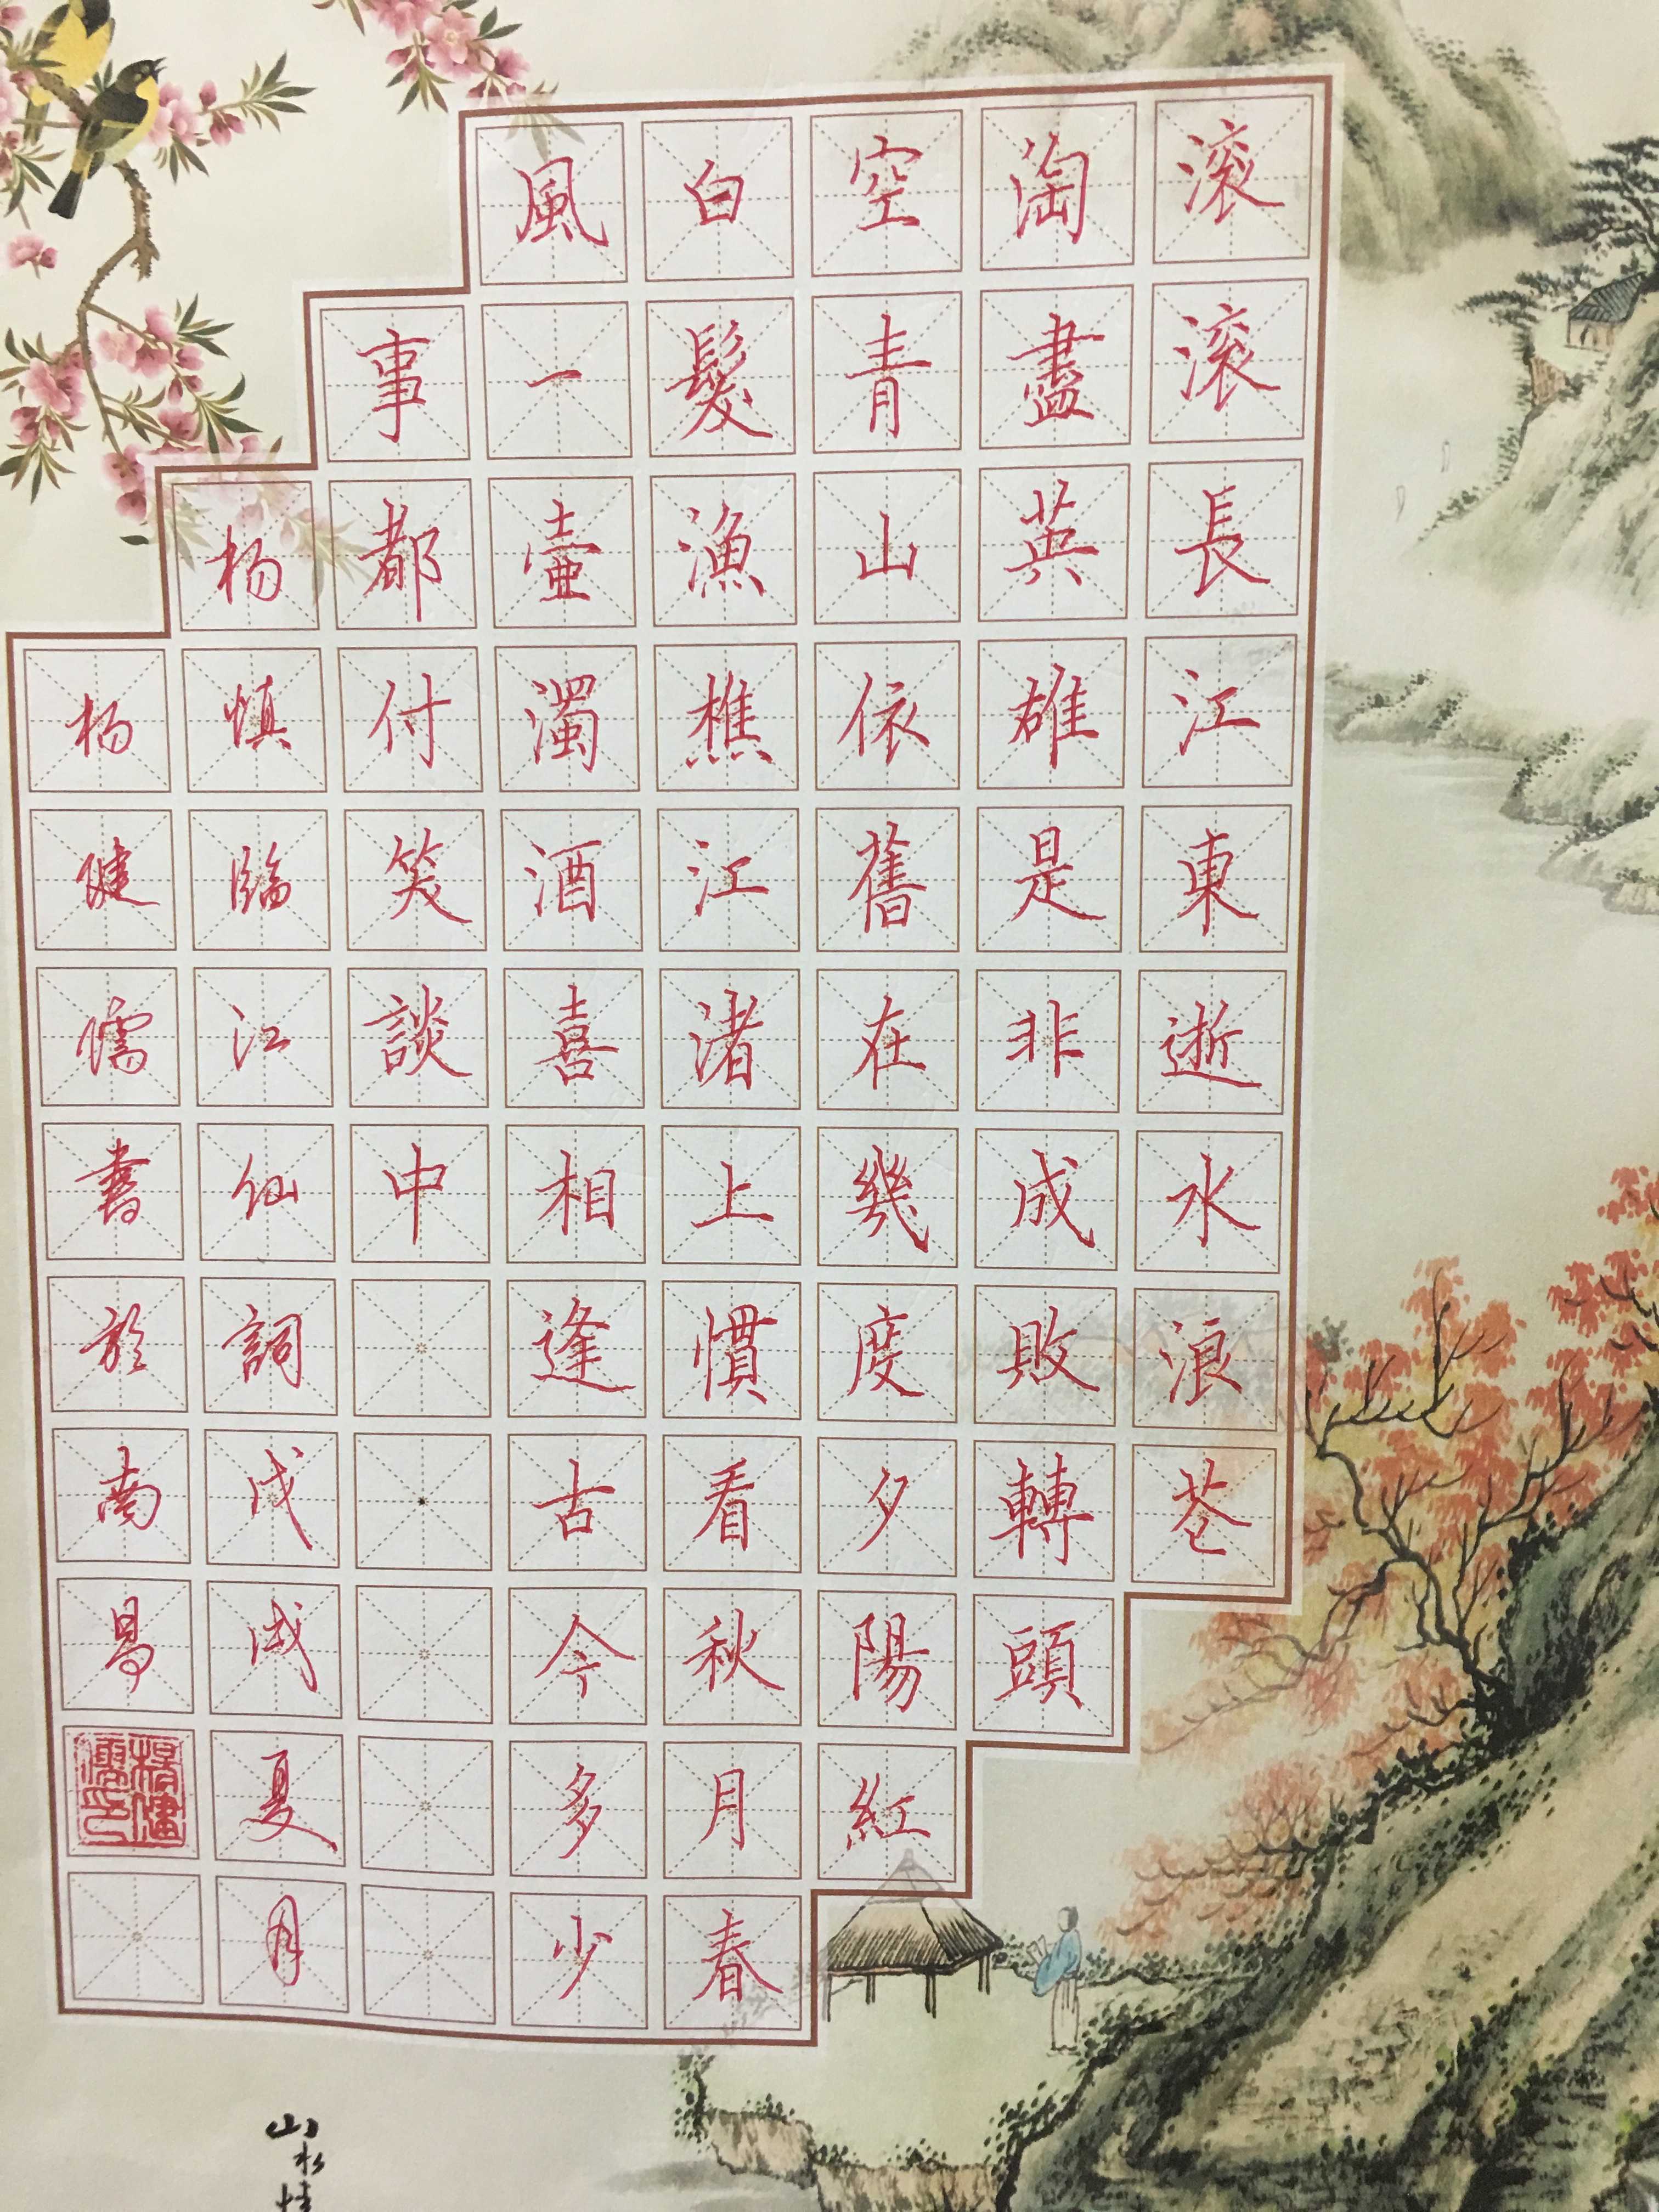 滚滚長江東逝水浪花
淘盡英雄是非成敗轉頭
空青山依舊在幾度夕陽紅
白髮漁樵江渚上慣看秋月春
風一壺濁酒喜相逢古今多少
事都付笑談中
杨慎臨江仙詞戊戌夏月
杨健儒書於南昌
楊健儒印
山水情